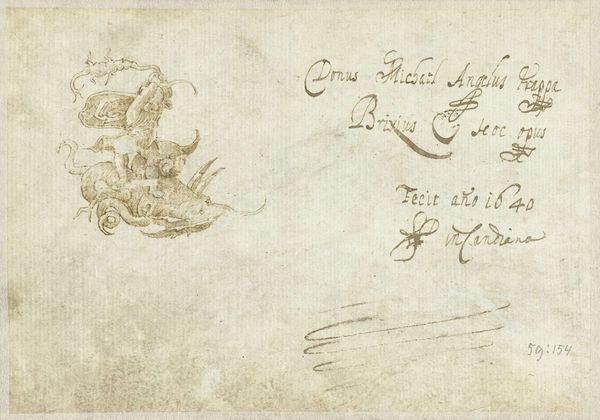 Donus Michael Angelus Kappa
Brixius hoc opus
Fecit año 1640
in Candiana
59:154